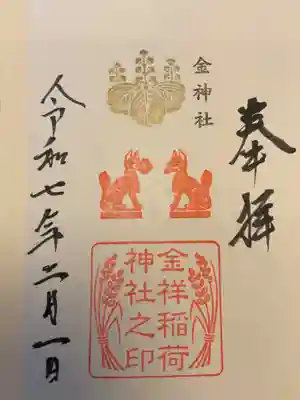 奉拝
金神社
金祥稲荷
神社之印
令和七年二月一日